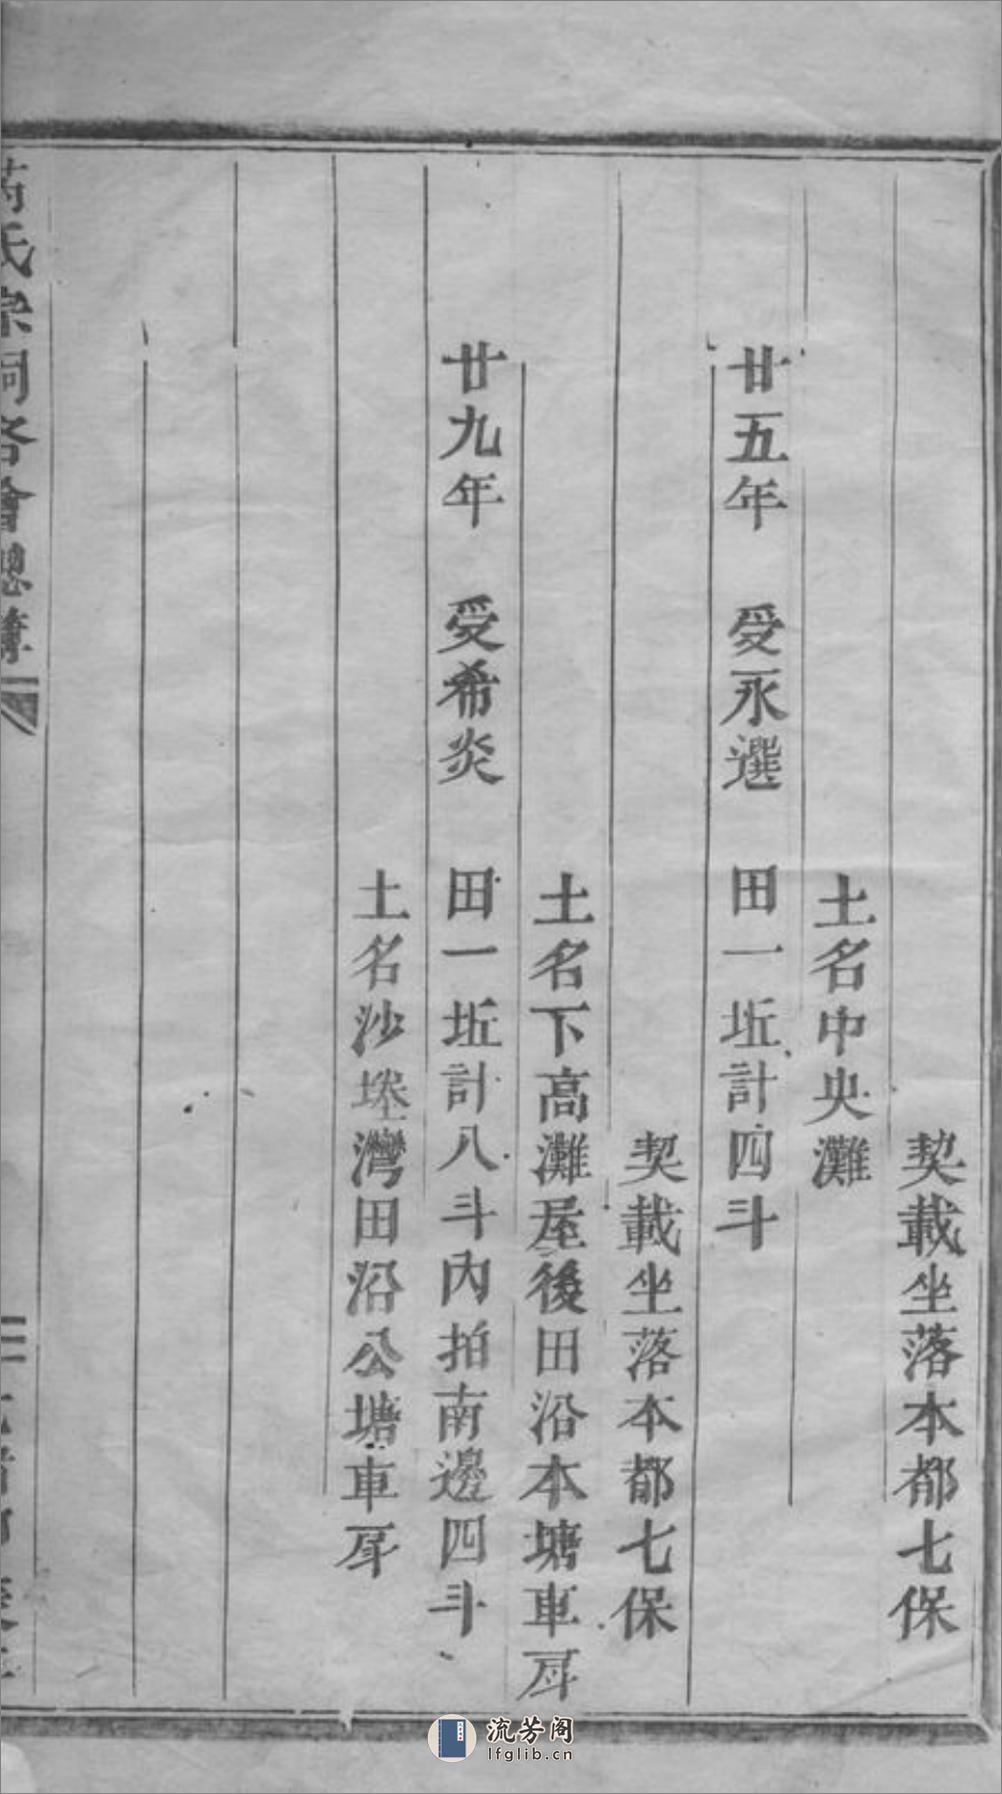 契載坐落本都七保
土名中央灘
廿五年 受永選 田一坵計四斗
契載坐落本都七保
土名下高灘屋後田沿本塘車戽
廿九年 受希炎 田一坵計八斗內拍南邊四斗
土名沙塟灣田沿公塘車戽
氏宗祠各會總簿
流芳阁
lfglib.cn